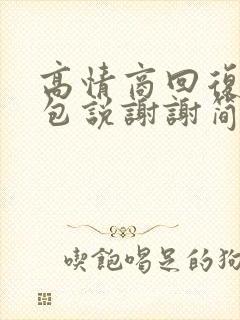 高情商回復
包説謝謝简
喫飽喝足的狗